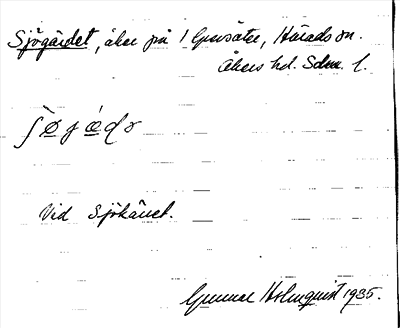 Sjögärdet, åker på 1 Ljusäter, Härads sn.
Åkers hd. Sdm. l.
Vid Sjökärret.
Gunnar Holmquist 1935.